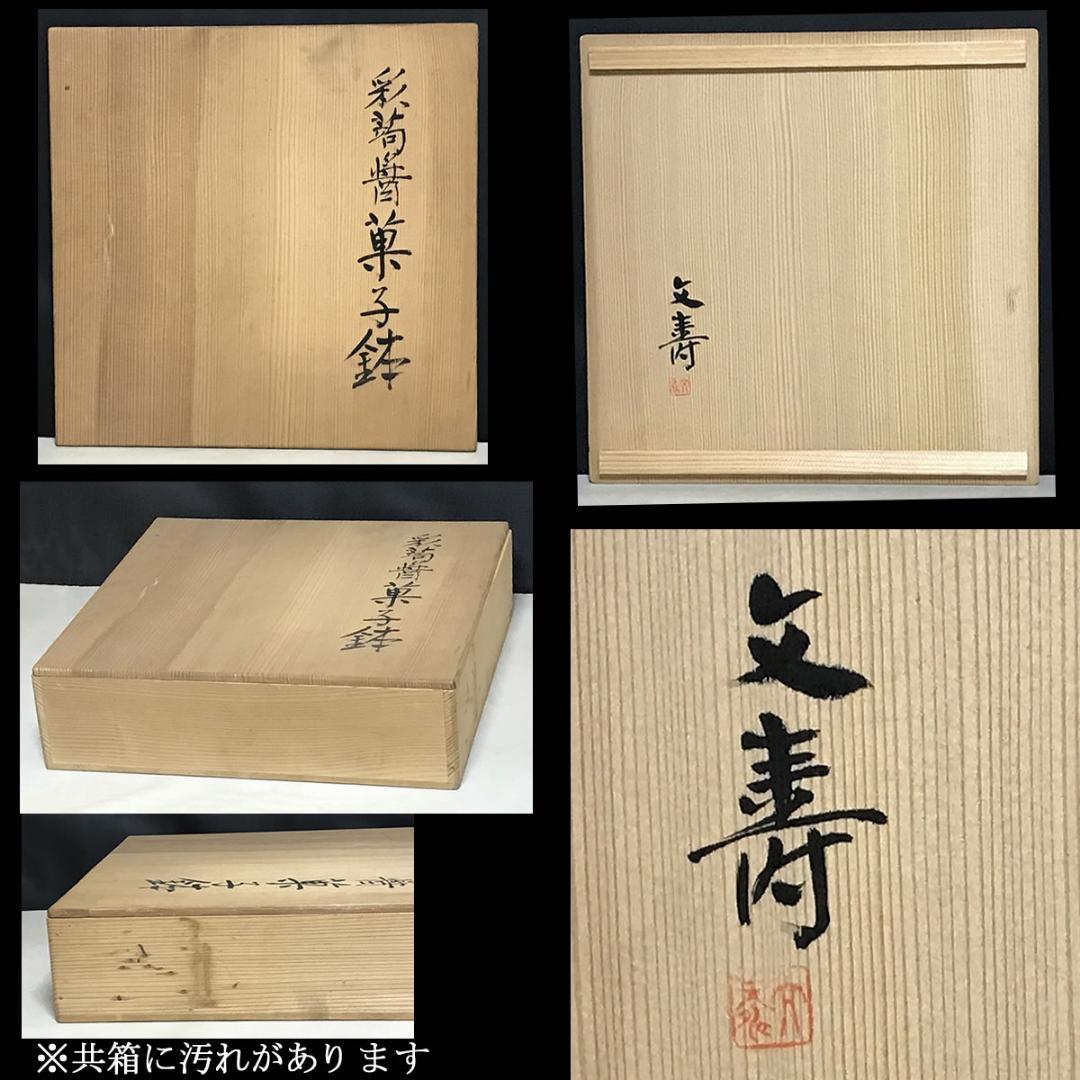 彩蒟醤菓子鉢
文壽
彩蒟醤菓子鉢
文壽
※共箱に汚れがあり ます